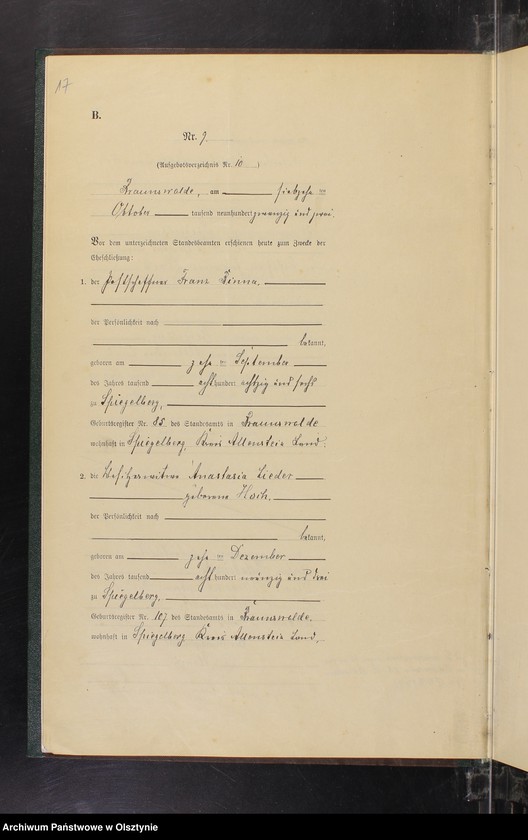 17
B.
Nr. 9.
(Aufgebotsverzeichnis Nr. 10)
Braunswalde, am siebzehn ten
Oktober tausend neunhundert zwanzig und zwei.
Vor dem unterzeichneten Standesbeamten erschienen heute zum Zwecke der
Eheschließung:
1. der Postschaffner Franz Zinna,
der Persönlichkeit nach
bekannt,
geboren am zehn ten September
des Jahres tausend acht hundert achtzig und sechs
zu Spiegelberg,
Geburtsregister Nr. 85 des Standesamts in Braunswalde
wohnhaft in Spiegelberg, Kreis Allenstein Land.
2. die Besitzerwitwe Anastasia Lieder
geborene Hoih,
der Persönlichkeit nach
bekannt,
geboren am zehn ten Dezember
des Jahres tausend acht hundert neunzig und drei
zu Spiegelberg,
Geburtsregister Nr. 107 des Standesamts in Braunswalde,
wohnhaft in Spiegelberg Kreis Allenstein Land.
Archiwum Państwowe w Olsztynie